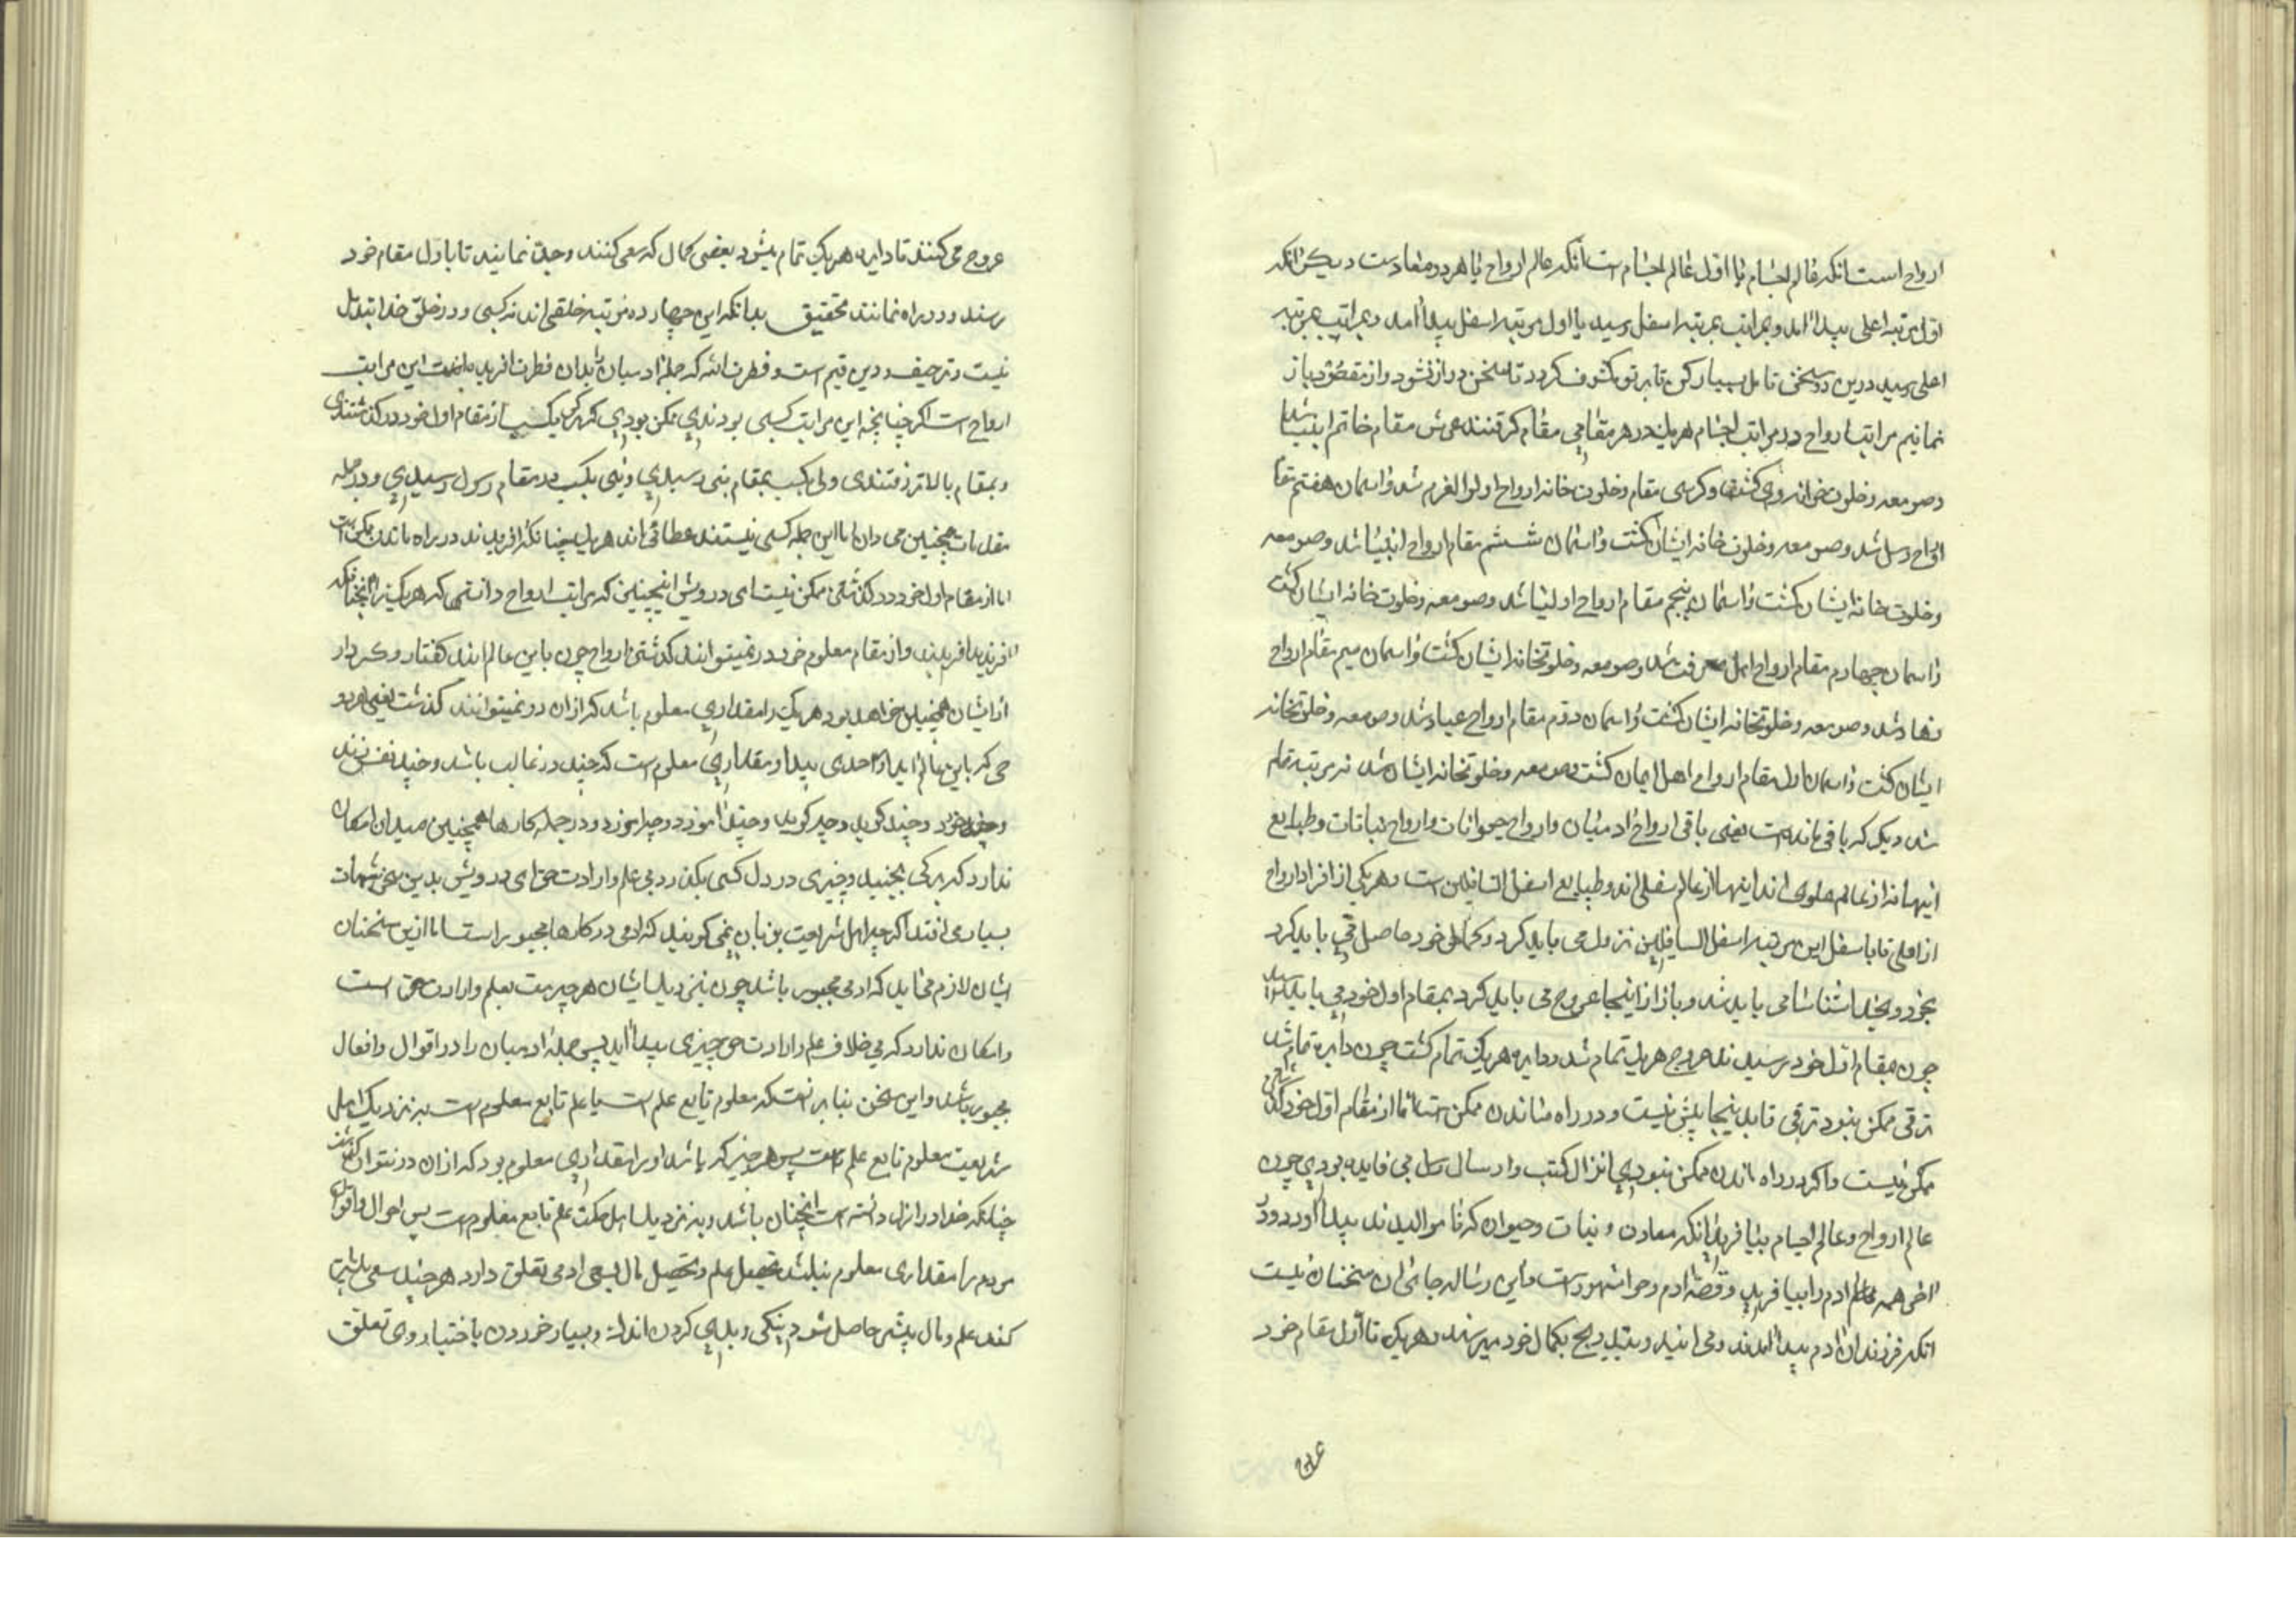 ارواح است انکه عالم اجسام یا اول عالم اجسام است انکه عالم ارواح یا هر دو معا دست دیکر انکه
اول مرتبه اعلی پیدا امد و بمراتب بمرتبه اسفل رسید یا اول مرتبه اسفل پیدا امد و بمراتب بمرتبه
اعلی رسید درین دو سخن تامل بسیار کن تا بر تو مکشوف کردد تا سخن دراز نشود و از مقصود باز
نمانیم مراتب ارواح در مراتب اجسام هر یک در هر مقامی مقام کرفتند عرش مقام خاتم انبیا شد
و صومعه و خلوت خانه وی کشت و کرسی مقام و خلوت خانه ارواح اولوا العزم شد و اسمان هفتم مقام
ارواح رسل شد و صومعه و خلوت خانه ایشان کشت و اسمان ششم مقام ارواح انبیا شد و صومعه
و خلوت خانه ایشان کشت و اسمان پنجم مقام ارواح اولیا شد و صومعه و خلوت خانه ایشان کشت
و اسمان چهارم مقام ارواح اهل معرفت شد و صومعه و خلوتخانه ایشان کشت و اسمان سیم مقام ارواح
زهاد شد و صومعه و خلوتخانه ایشان کشت و اسمان دوم مقام ارواح عباد شد و صومعه و خلوتخانه
ایشان کشت و اسمان اول مقام ارواح اهل ایمان کشت و صومعه و خلوتخانه ایشان شد نه مرتبه تمام
شد دیکر که باقی مانده است یعنی باقی ارواح ادمیان و ارواح حیوانات و ارواح نباتات و طبایع
اینها نه از عالم علوی اند اینها از عالم سفلی اند و طبایع اسفل السافلین است و هر یکی از افراد ارواح
از اعلی تا باسفل این مرتبه اسفل السافلین نزول می باید کرد و کمال خود حاصل می باید کرد
بخود و بخدا شناسا می باید شد و باز از اینجا عروج می باید کرد بمقام اول خود می باید رسید
چون بمقام اول خود رسیدند عروج هر یک تمام شد و دایره هر یک تمام کشت چون دایره تمام شد
ترقی ممکن نبود ترقی تا بدینجا بیش نیست و در راه ماندن ممکن است اما از مقام اول خود کذشتن
ممکن نیست و اکر در راه ماندن ممکن نبودی انزال کتب و ارسال رسل بی فایده بودی چون
عالم ارواح و عالم اجسام بیافرید انکه معادن و نبات و حیوان که موالیدند پیدا اورد و در
اخر همه ادم را بیافرید و قصه ادم و حوا مشهور است و این رساله جای ان سخنان نیست
انکه فرزندان ادم پیدا امدند و می ایند و بتدریج بکمال خود میرسند و هر یک تا اول مقام خود
عروج
عروج می کنند تا دایره هر یک تمام میشود بعضی کمال که سعی کنند و جد نمایند تا باول مقام خود
رسند و در راه نمانند تحقیق بدانکه این چهارده مرتبه خلقی اند نه کسبی و در خلق خدا تبدیل
نیست و ترحیف و دین قیم است و فطرت الله که جمله ادمیان را بدان فطرت افرید این مراتب
ارواح است اکر چنانچه این مراتب کسبی بودندی ممکن بودی که هر یک بکسب از مقام اول خود در کذشتندی
و بمقام بالاتر رفتندی ولی بکسب بمقام نبی رسیدی و نبی بکسب در مقام رسول رسیدی و در جمله
مقامات همچنین می دان اما این جمله کسبی نیستند عطائی اند هر یک چنانکه افریدند در راه ماندن ممکن است
اما از مقام اول خود در کذشتن ممکن نیست ای درویش اینچنین که مراتب ارواح دانستی که هر یک را انچنانکه
افریدند افریدند و از مقام معلوم خود در نمیتوانند کذشتن ارواح چون باین عالم ایند کفتار و کردار
از ایشان همچنین خواهد بود هر یک را مقداری معلوم باشد که از ان در نمیتوانند کذشت یعنی هر رو
حی که باین عالم اید او را حدی پیدا و مقداری معلوم است که چند در غالب باشد و چند نفس زند
و چند خورد و چند کوید و چه کوید و چند اموزد و چه اموزد و در جمله کارها همچنین میدان امکان
ندارد که برکی بجنبد و چیزی در دل کسی بکذرد بی علم و ارادت حق ای درویش بدین سخن شبهات
بسیار می افتد اکر چه اهل شریعت بزبان نمی کویند که ادمی در کارها مجبور است اما ازین سخنان
ایشان لازم می اید که ادمی مجبور باشد چون نزدیک ایشان هر چه هست بعلم و ارادت حق است
و امکان ندارد که بی خلاف علم و ارادت حق چیزی پیدا اید پس جمله ادمیان را در اقوال و افعال
مجبور باشد و این سخن بنا بر انست که معلوم تابع علم است یا علم تابع معلوم است بنزدیک اهل
شریعت معلوم تابع علم است پس هر چیز که باشد او را مقداری معلوم بود که از ان در نتوان کذشت
چنانکه خدا در ازل دانسته است انچنان باشد و بنزدیک اهل حکمت علم تابع معلوم است پس احوال و اقوال
مردم را مقداری معلوم نباشد تحصیل علم و تحصیل مال بسعی ادمی تعلق دارد هر چند سعی بیشتر
کند علم و مال بیشتر حاصل شود نیکی و بدی کردن اندک و بسیار خوردن باختیار وی تعلق